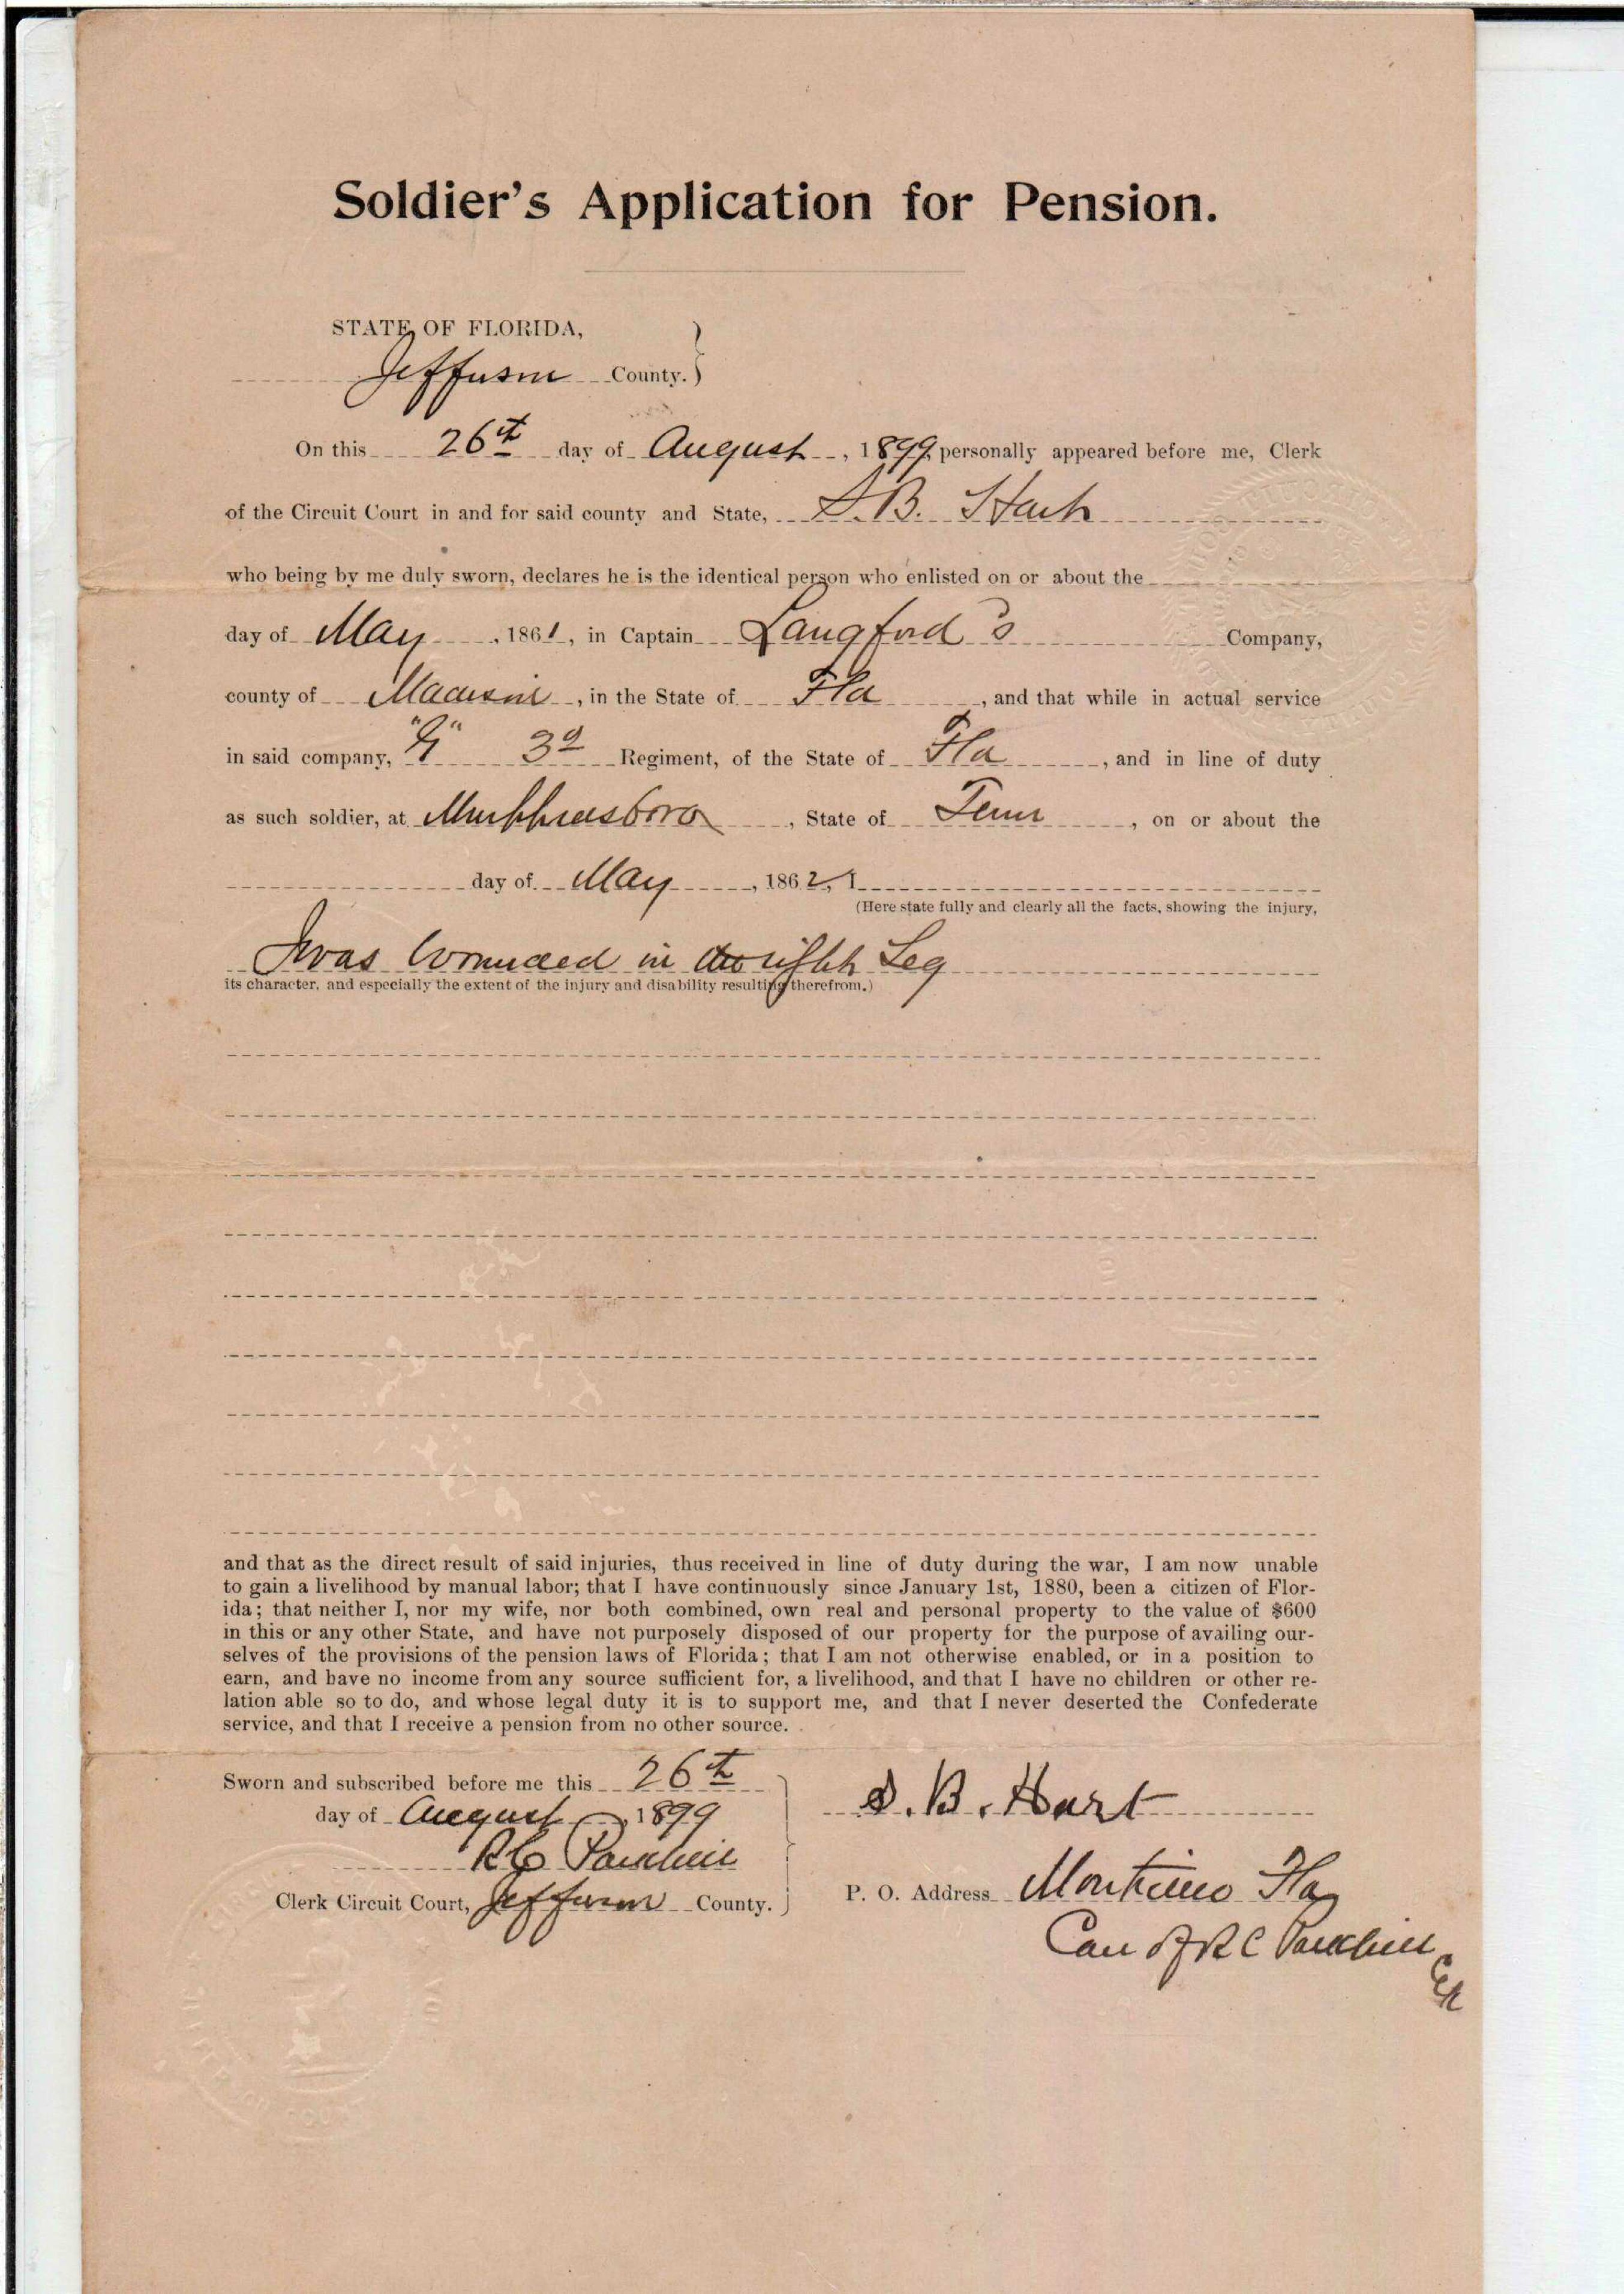 Soldier's Application for Pension.
STATE OF FLORIDA,
Jefferson County.
On this 26th day of August, 1899, personally appeared before me, Clerk
of the Circuit Court in and for said county and State, S. B. Hart
who being by me duly sworn, declares he is the identical person who enlisted on or about the
day of May, 1861, in Captain Langford's Company,
county of Madison, in the State of Fla, and that while in actual service
in said company, "G" 3d Regiment, of the State of Fla, and in line of duty
as such soldier, at Murphreesboro, State of Tenn, on or about the
day of May, 1862, I
(Here state fully and clearly all the facts, showing the injury,
I was wounded in the right Leg
its character, and especially the extent of the injury and disability resulting therefrom.)
and that as the direct result of said injuries, thus received in line of duty during the war, I am now unable
to gain a livelihood by manual labor; that I have continuously since January 1st, 1880, been a citizen of Flor-
ida; that neither I, nor my wife, nor both combined, own real and personal property to the value of $600
in this or any other State, and have not purposely disposed of our property for the purpose of availing our-
selves of the provisions of the pension laws of Florida; that I am not otherwise enabled, or in a position to
earn, and have no income from any source sufficient for, a livelihood, and that I have no children or other re-
lation able so to do, and whose legal duty it is to support me, and that I never deserted the Confederate
service, and that I receive a pension from no other source.
Sworn and subscribed before me this 26th
day of August, 1899
R C Parkhill
Clerk Circuit Court, Jefferson County.
S. B. Hart
P. O. Address Monticello Fla
Care of R C Parkhill
Clk